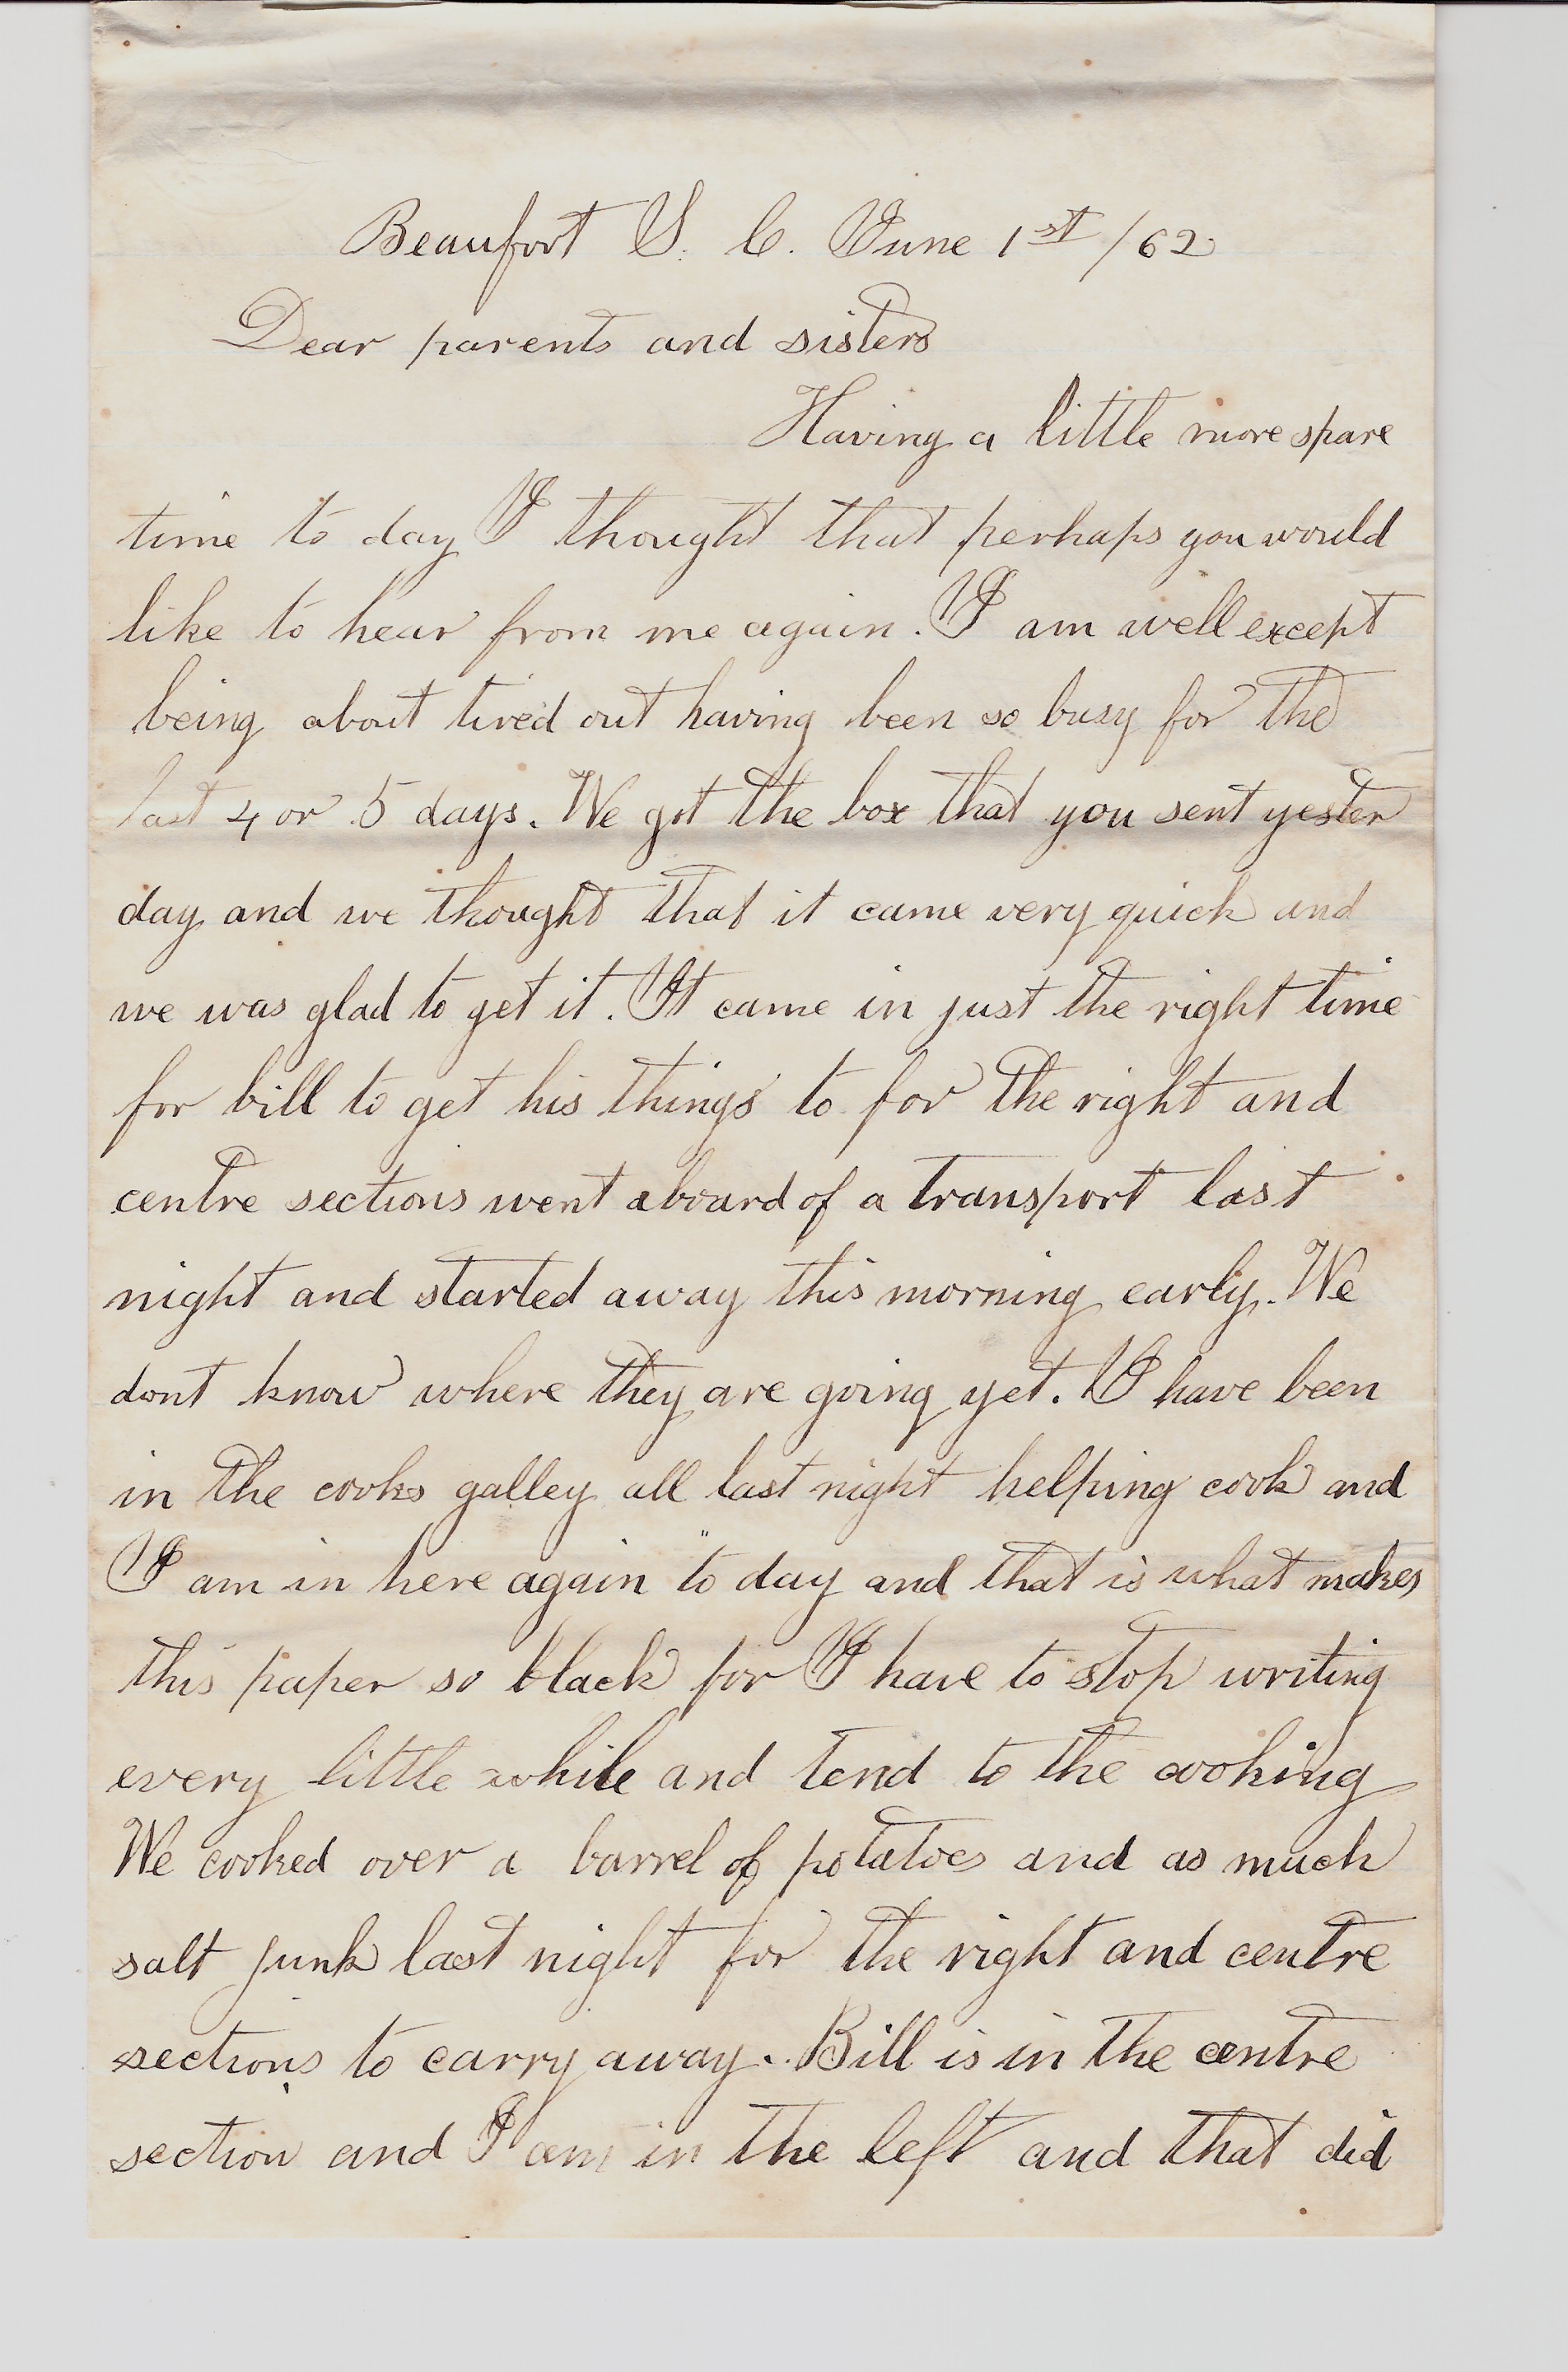 Beaufort S. C. June 1st /62
Dear parents and sisters
Having a little more spare
time to day I thought that perhaps you would
like to hear from me again. I am well except
being about tired out having been so busy for the
last 4 or 5 days. We got the box that you sent yester
day and we thought that it came very quick and
we was glad to get it. It came in just the right time
for bill to get his things to for the right and
centre sections went aboard of a transport last
night and started away this morning early. We
dont know where they are going yet. I have been
in the cooks galley all last night helping cook and
I am in here again to day and that is what makes
this paper so black for I have to stop writing
every little while and tend to the cooking
We cooked over a barrel of potatoes and as much
salt junk last night for the right and centre
sections to carry away. Bill is in the centre
section and I am in the left and that did